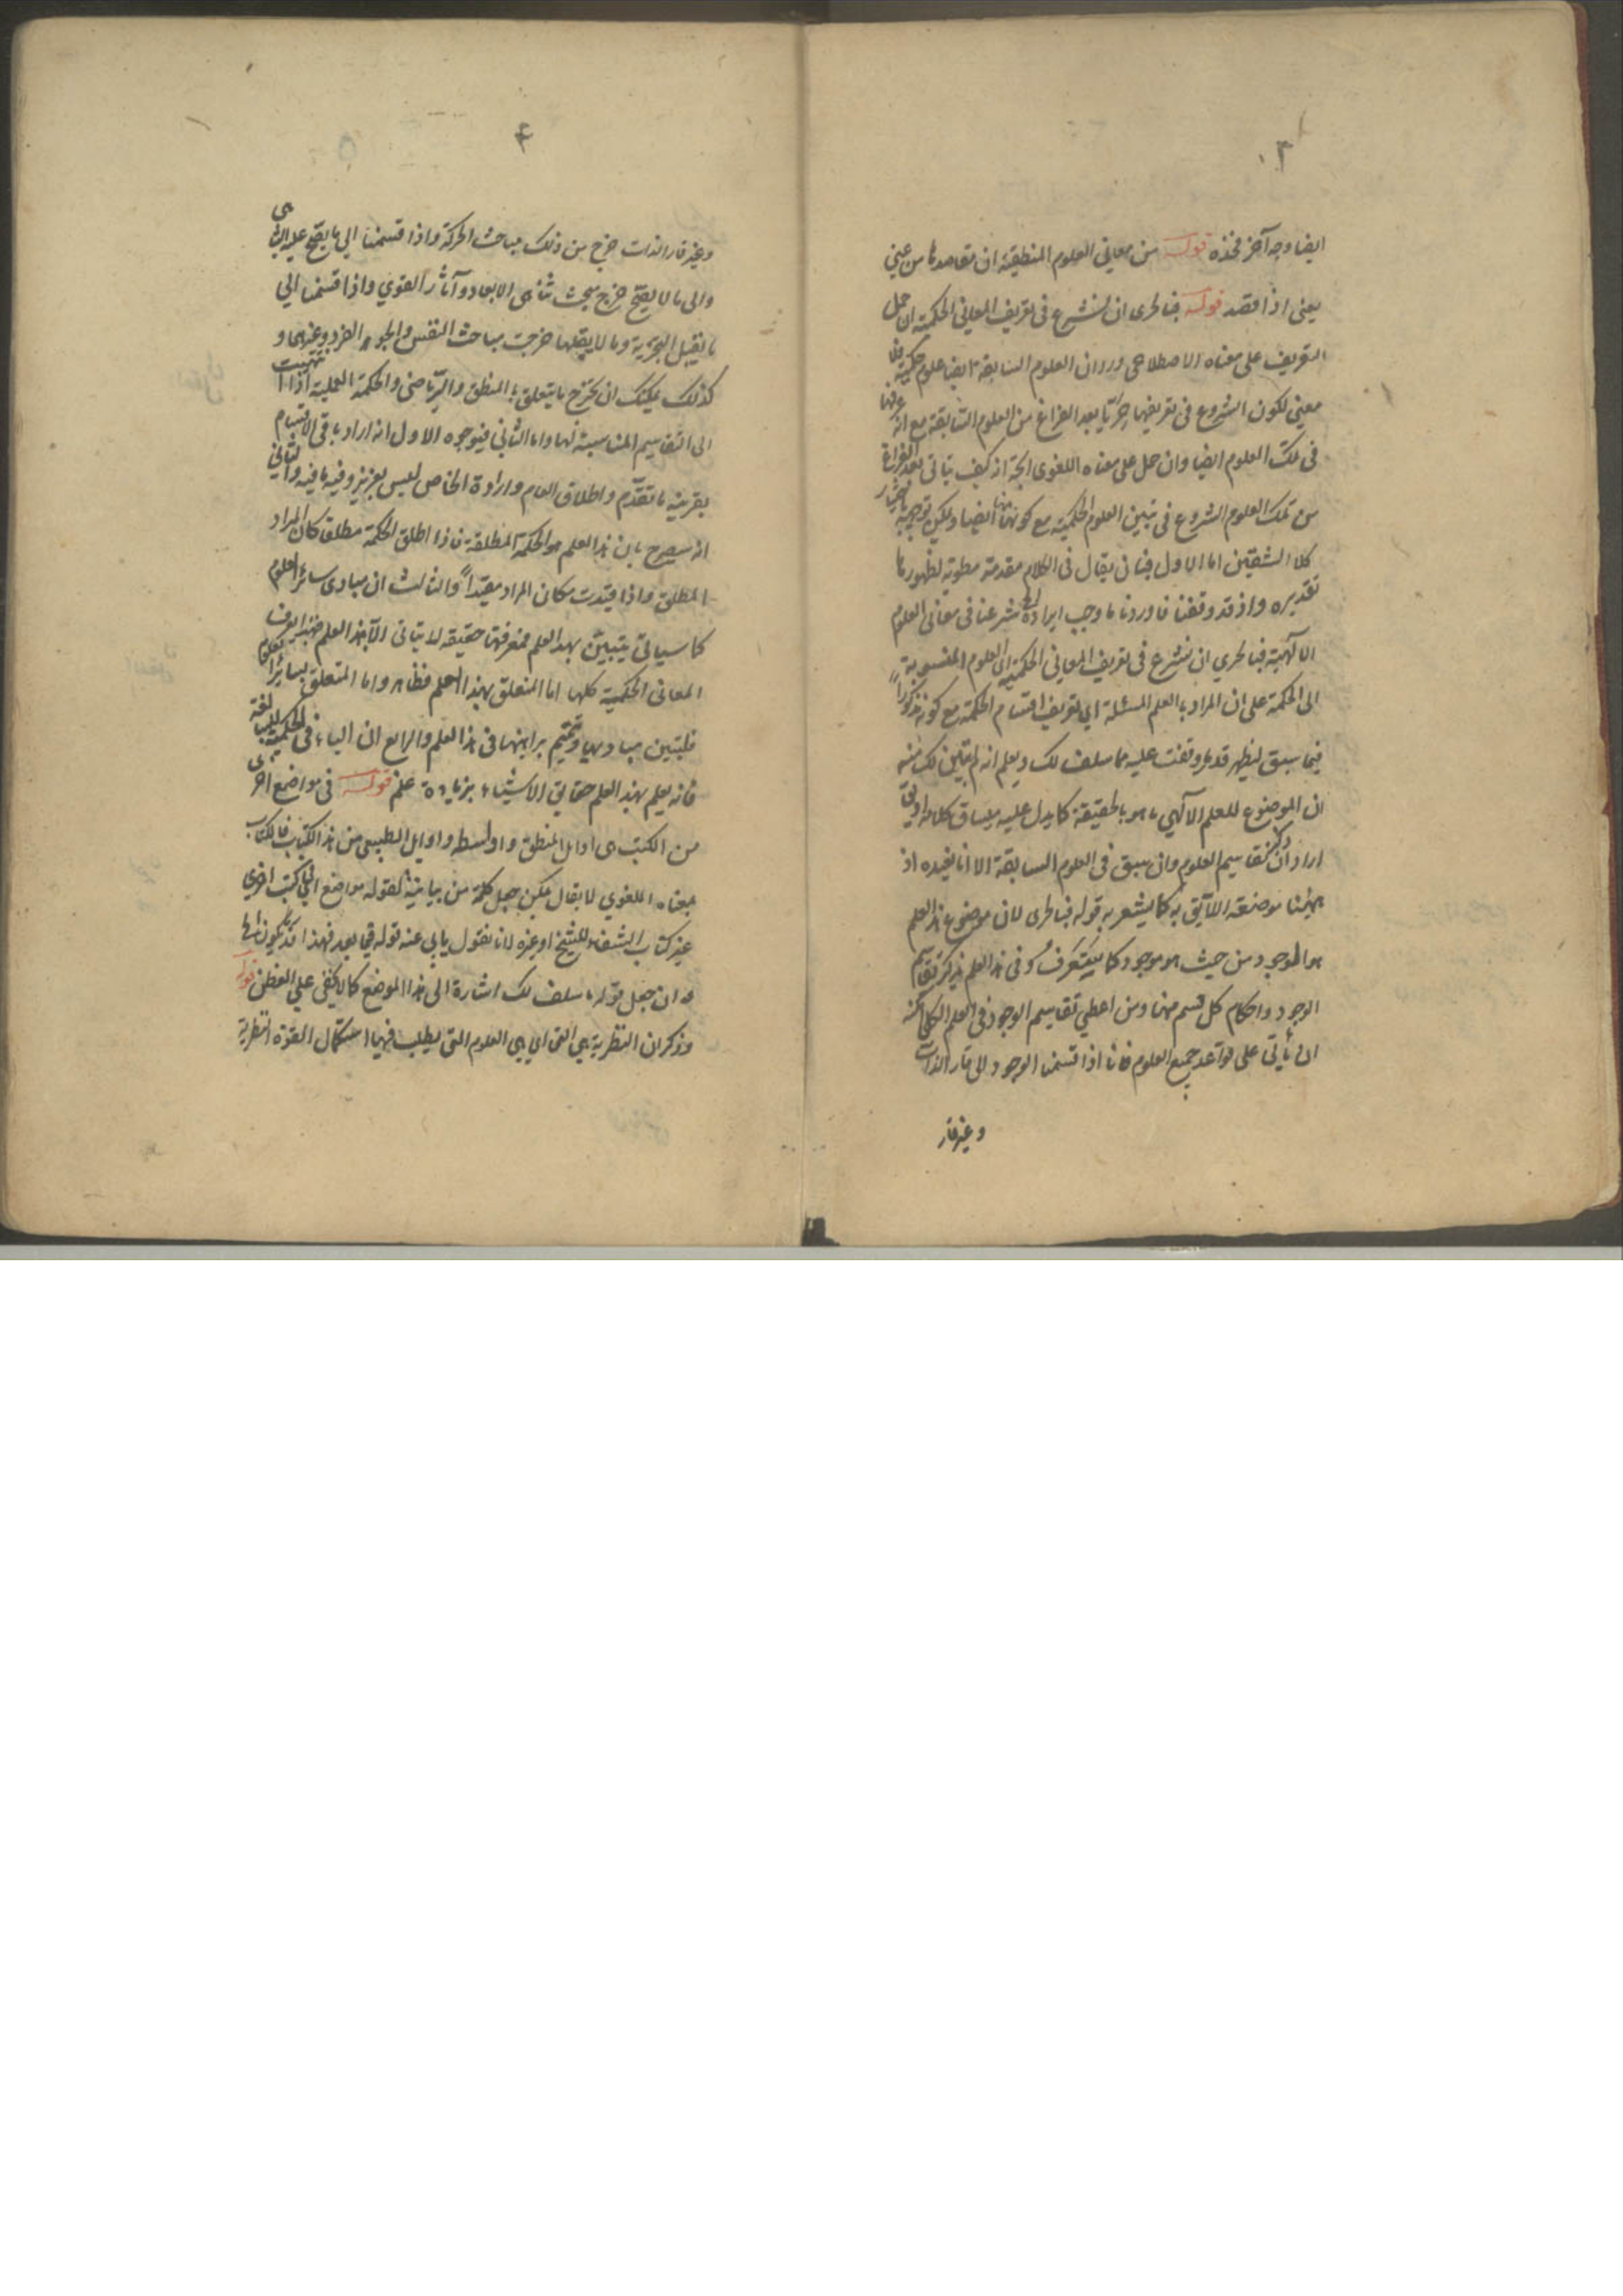 ٣
ايضا وجه آخر فخذه قوله من معاني العلوم المنطقية ان مقاصدها من عيني
يعني اذا قصد قوله فبالحرى ان نشرع في تعريف المعاني الحكمية ان حمل
التعريف على معناه الاصطلاحي ورد ان العلوم السابقة ايضا علوم حكمية فلا
معنى لكون الشروع في تعريفها حريّا بعد الفراغ من العلوم السابقة مع انه عرفها
في تلك العلوم ايضا وان حمل على معناه اللغوى اتجه انه كيف يتاتى بعد الفراغ
من تلك العلوم الشروع في تبيين العلوم الحكمية مع كونها منها ايضا ويمكن توجيهه باختيار
كلا الشقين اما الاول فبان يقال في الكلام مقدمة مطوية لظهورها
تقديره واذ قد وقفنا فاوردنا ما وجب ايراده شرعنا في معاني العلوم
الالهية فبالحري ان نشرع في تعريف المعاني الحكمية اى العلوم المنسوبة
الى الحكمة على ان المراد بالعلم المسئلة اى تعريف اقسام الحكمة مع كونه مذكوراً
فيما سبق ليظهر قدر ما وقفت عليه مما سلف لك ويعلم انه لم يتبين لك منه
ان الموضوع للعلم الالهي ما هو بالحقيقة كما يدل عليه مساق كلامه او يقى
اراد ان ذكر تقاسيم العلوم وان سبق في العلوم السابقة الا انا نفيده اذ
ههنا موضعه اللايق به كما يشعر به قوله فبالحرى لان موضوع هذا العلم
هو الموجود من حيث هو موجود كما سيتعرفه وفي هذا العلم يذكر تقاسيم
الوجود واحكام كل قسم منها ومن اعطي تقاسيم الوجود في العلم الكلى امكنه
ان يأتي على قواعد جميع العلوم فانا اذا قسمنا الوجود الى قار الذات
وغير قار
۴
وغير قار الذات خرج من ذلك مباحث الحركة واذا قسمنا الى ما يصح عليه التناهى
والى ما لا يصح خرج مبحث تناهى الابعاد وآثار القوي واذا قسمنا الي
ما يقبل التجزية وما لا يقبلها خرجت مباحث النفس والجوهر الفرد وغيرهما و
كذلك يمكنك ان تخرج ما يتعلق بالمنطق والرّياضى والحكمة العملية اذا انتهيت
الى التقاسيم المناسبة لها واما الثاني فبوجوه الاول انه اراد باقى الاقسام
بقرينة ما تقدّم واطلاق العام وارادة الخاص ليس بعزيز وفيه ما فيه والثاني
انه سيصرح بان هذا العلم هو الحكمة المطلقة فاذا اطلق الحكمة مطلق كان المراد
المطلق واذا قيدت مكان المراد مقيداً والثالث ان مبادى سائر العلوم
كما سياتى يتبيّن بهذا العلم فمعرفتها حقيقة لا يتاتى الا بهذا العلم فبهذا يعرف
المعانى الحكمية كلها اما المتعلق بهذا العلم فظاهر واما المتعلق بسائر العلوم
فلتبيين مباديها وتتميم براهينها في هذا العلم والرابع ان الياء في الحكمية للمبالغة
فانه يعلم بهذا العلم حقايق الاشياء بزيادة علم قوله في مواضع اخرى
من الكتب اى اوايل المنطق واواسطه واوايل الطبيعى من هذا الكتاب فالكتاب
بمعناه اللغوي لا يقال يمكن جعل كلمة من بيانية لقوله مواضع اى في كتب اخرى
غير كتاب الشفاء للشيخ او غيره لانا نقول يابى عنه قوله فيما بعد فهذا قدر ما يكون
مه ان جعل قوله ما سلف لك اشارة الى هذا الموضع كما لا يخفى علي الفطن قوله
وذكر ان النظرية هي التى اى هي العلوم التي يطلب فيها استكمال القوة النظرية